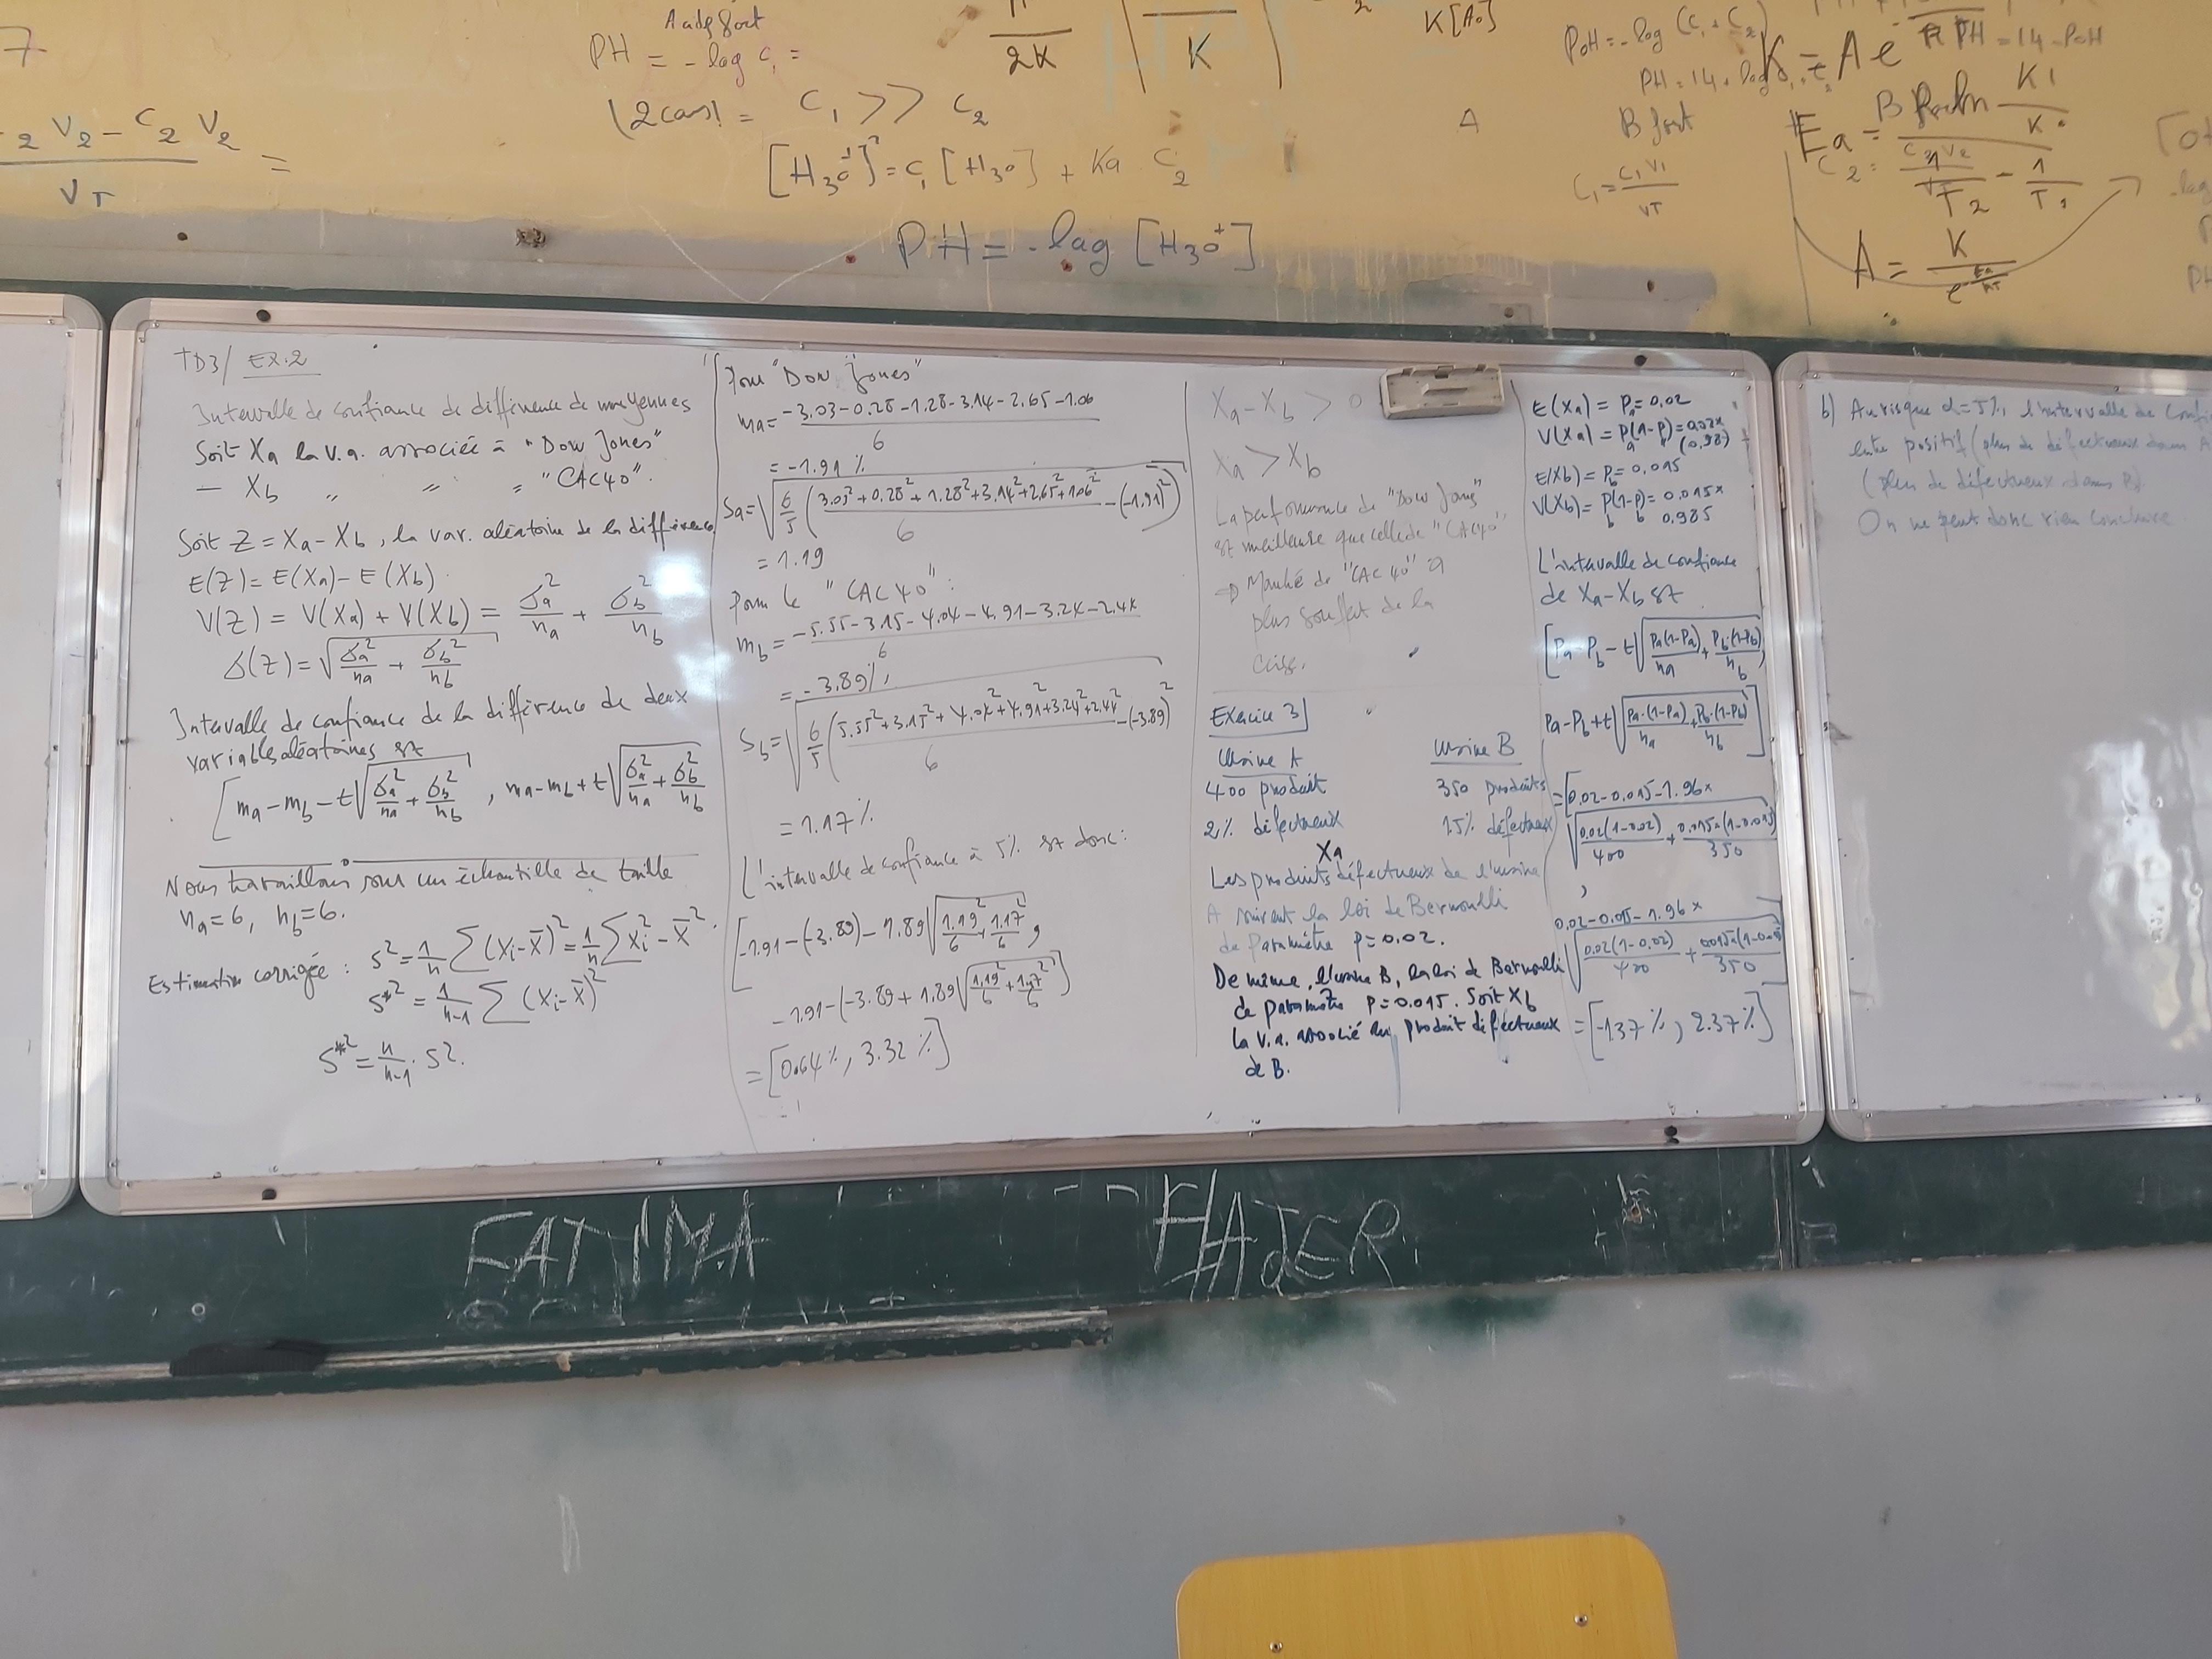 7
2 V2 - C2 V2 =
VT
Aade fort
PH = - log C1 =
(2 cas) = C1 >> C2
[H3O+]² = C1 [H3O] + Ka C2
PH = - log [H3O+]
2K
K
K[A0]
A
POH = - log (C1 + C2)
B fort
C1 = C1V1 / VT
K = A e
PH = 14 - POH
Ea =
C2 =
1/T2 - 1/T1
A = K / e^(Ea/RT)
TD3/ EX.2
Intervalle de confiance de différence de moyennes
Soit Xa la v.a. associée à "Dow Jones"
— Xb " " " "CAC40".
Soit Z = Xa - Xb, la var. aléatoire de la différence
E(Z) = E(Xa) - E(Xb).
V(Z) = V(Xa) + V(Xb) = σa²/na + σb²/nb
σ(Z) = √(σa²/na + σb²/nb)
Intervalle de confiance de la différence de deux
variables aléatoires st
[ma - mb - t√(σa²/na + σb²/nb) , ma - mb + t√(σa²/na + σb²/nb)
Nous travaillons sur un échantille de taille
na = 6, nb = 6.
Estimation corrigée : S² = 1/n ∑(Xi - X̄)² = 1/n ∑Xi² - X̄².
S*² = 1/(n-1) ∑(Xi - X̄)²
S*² = n/(n-1) · S².
Pour "Dow Jones"
ma = (-3.03 - 0.28 - 1.28 - 3.14 - 2.65 - 1.06) / 6
= -1.91 %
Sa = √(6/5 ((3.03² + 0.28² + 1.28² + 3.14² + 2.65² + 1.06²)/6 - (-1.91)²))
= 1.19
Pour le "CAC40" :
mb = (-5.55 - 3.15 - 4.04 - 4.91 - 3.24 - 2.44) / 6
= -3.89 %
Sb = √(6/5 ((5.55² + 3.15² + 4.04² + 4.91² + 3.24² + 2.44²)/6 - (-3.89)²
= 1.17 %
L'intervalle de confiance à 5% st donc :
[-1.91 - (-3.89) - 1.89√(1.19²/6 + 1.17²/6) ,
-1.91 - (-3.89 + 1.89√(1.19²/6 + 1.17²/6)]
= [0.64 %, 3.32 %]
Xa - Xb > 0
Xa > Xb
La performance de "Dow Jones"
st meilleure que celle de "CAC40"
⇒ Marché de "CAC40" a
plus souffert de la
crise.
Exercice 3
Usine A Usine B
400 produit 350 produits
2% défectueux 1.5% défectueux
Xa
Les produits défectueux de l'usine
A suivent la loi de Bernoulli
de Paramètre p = 0.02.
De même, l'usine B, la loi de Bernoulli
de paramètre p = 0.015. Soit Xb
la v.a. associé au produit défectueux
de B.
E(Xa) = Pa = 0.02
V(Xa) = Pa(1-Pa) = 0.02x
(0.98)
E(Xb) = Pb = 0.015
V(Xb) = Pb(1-Pb) = 0.015x
0.985
L'intervalle de confiance
de Xa - Xb st
[Pa - Pb - t√(Pa(1-Pa)/na + Pb(1-Pb)/nb) ,
Pa - Pb + t√(Pa·(1-Pa)/na + Pb·(1-Pb)/nb)]
= [0.02 - 0.015 - 1.96 x
√(0.02(1-0.02)/400 + 0.015x(1-0.015)/350)
,
0.02 - 0.015 - 1.96 x
√(0.02(1-0.02)/400 + 0.015x(1-0.015)/350)
= [-1.37 %, 2.37 %]
b) Au risque α = 5%, l'intervalle de confi
entre positif (plus de défectueux dans A
(plus de défectueux dans B)
On ne peut donc rien conclure
FATIMA HAJER